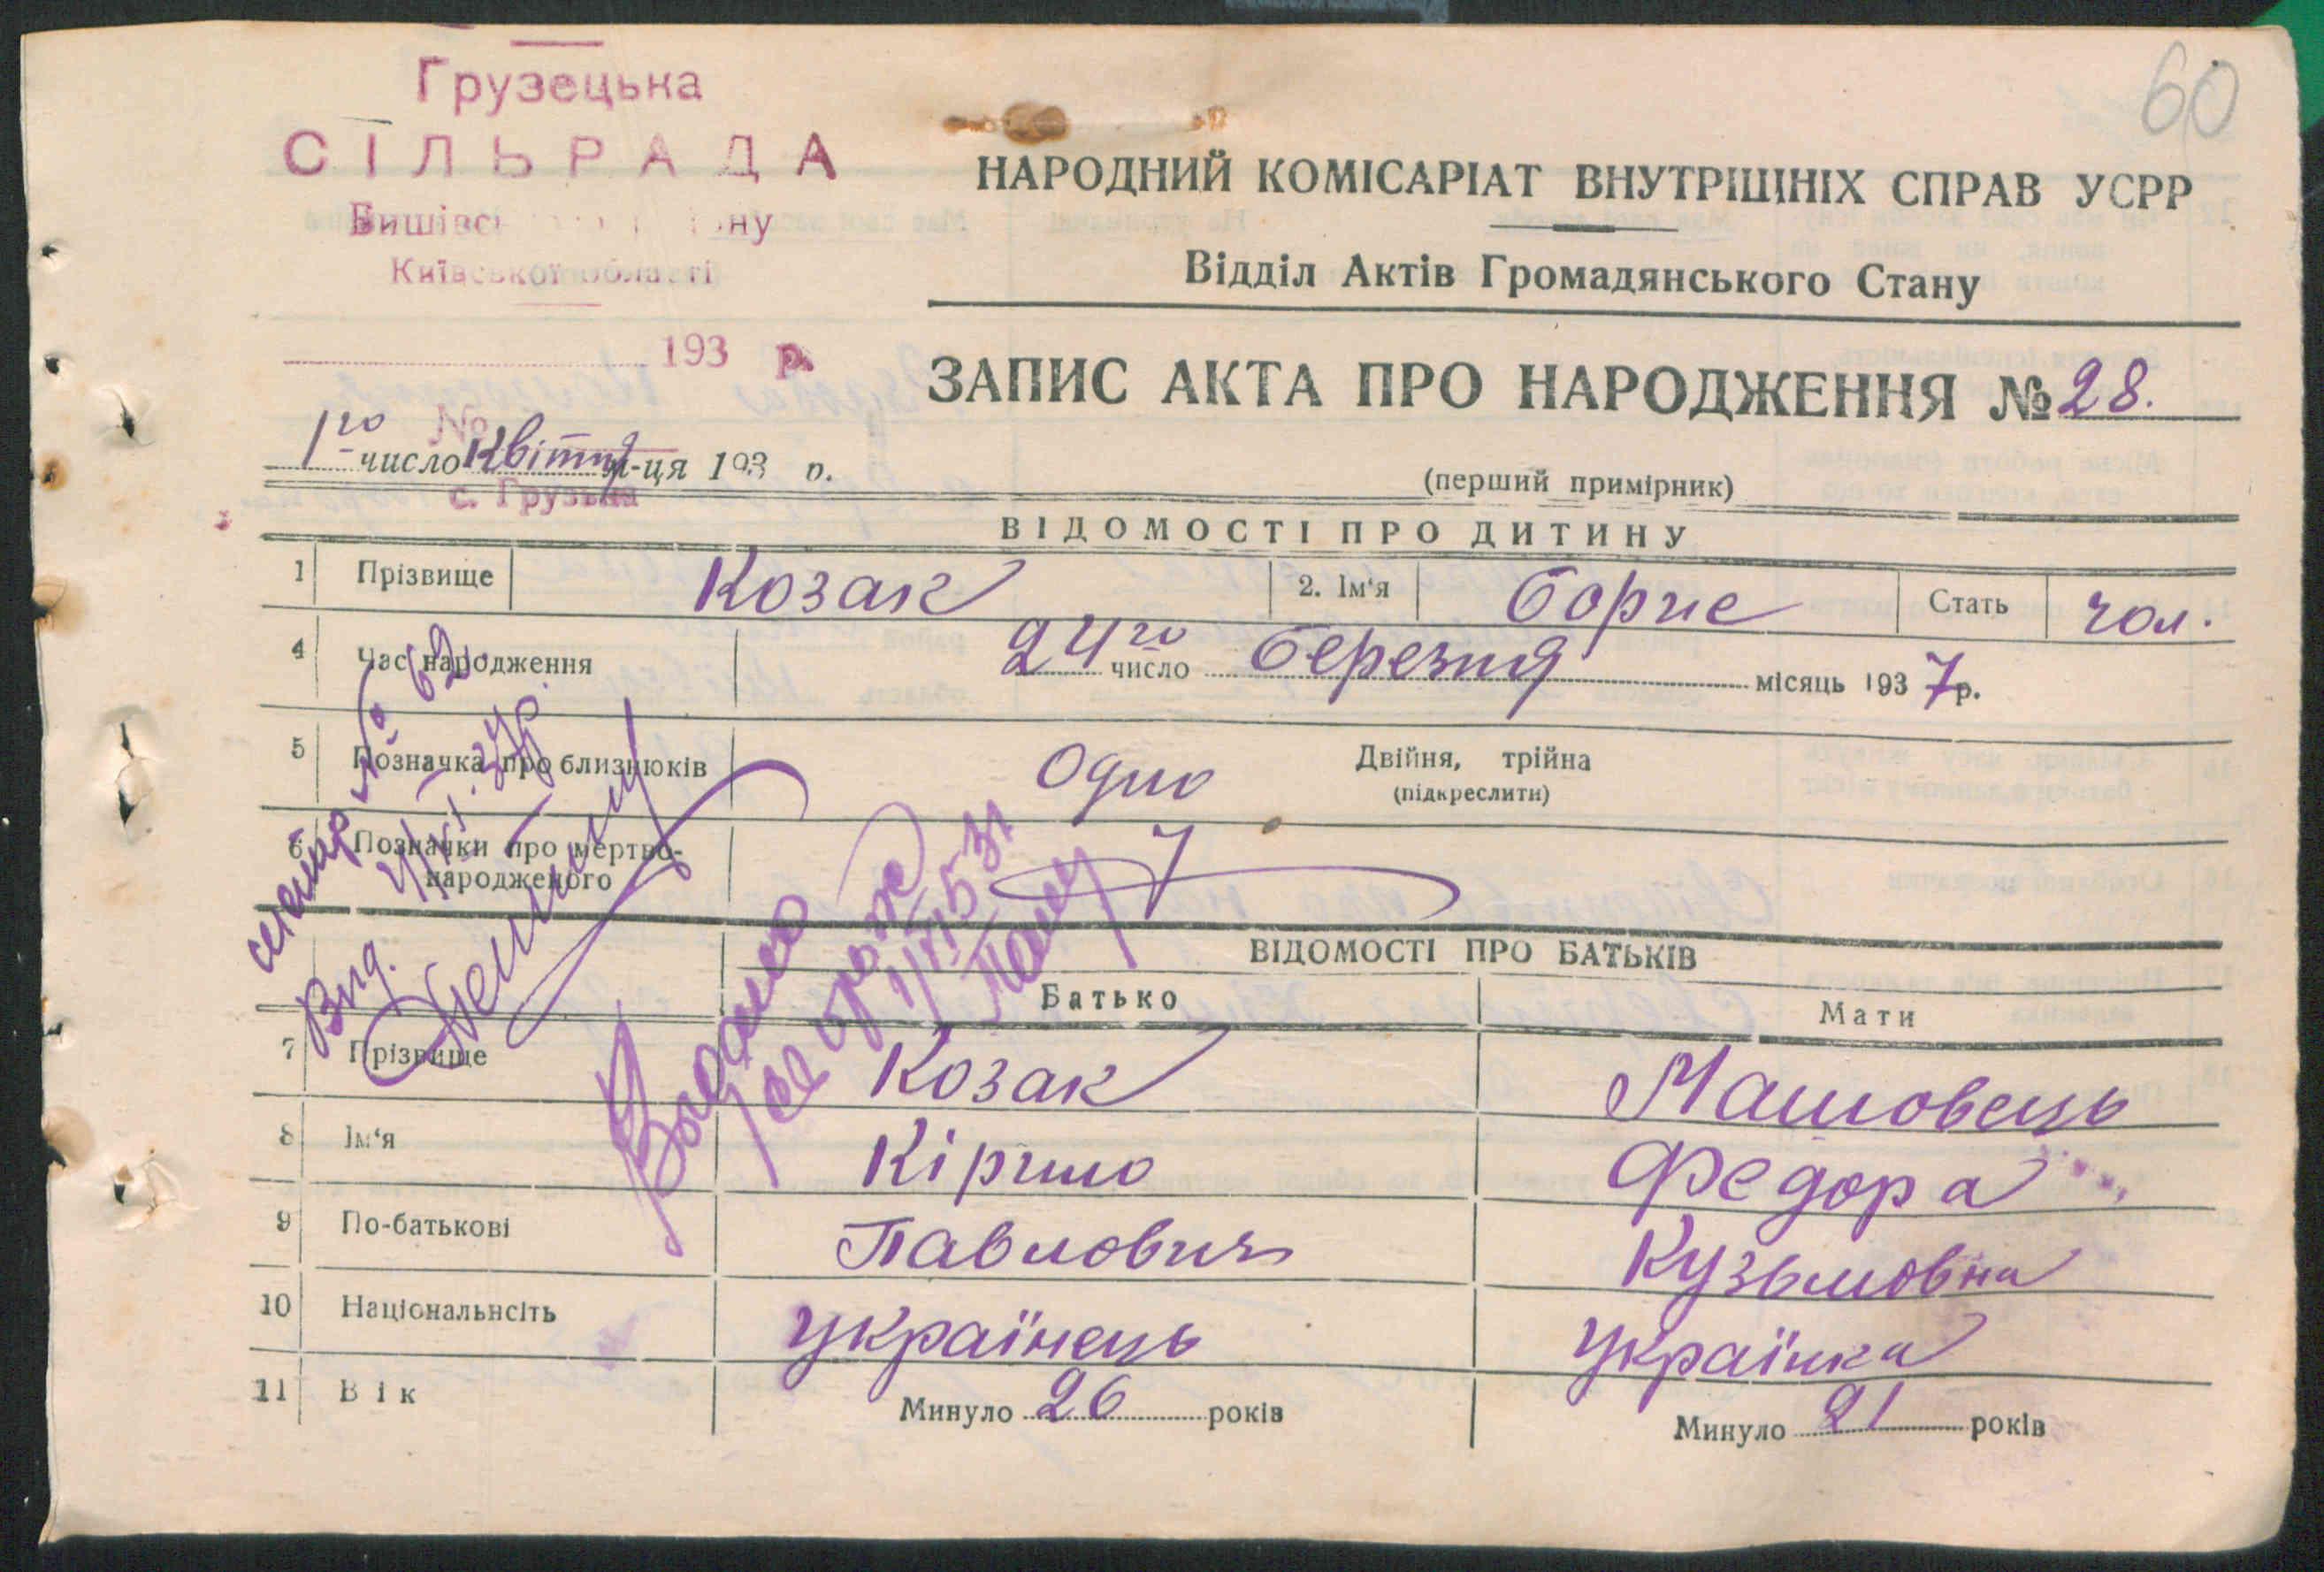 60
Грузецька
СІЛЬРАДА
Київської області
193 р.
№
с. Грузька
НАРОДНИЙ КОМІСАРІАТ ВНУТРІШНІХ СПРАВ УСРР
Відділ Актів Громадянського Стану
ЗАПИС АКТА ПРО НАРОДЖЕННЯ № 28.
1го число квітня м-ця 193 р.
(перший примірник)
ВІДОМОСТІ ПРО ДИТИНУ
1 Прізвище Козак 2. Ім'я Борис Стать чол.
4 Час народження 24го число березня місяць 1937 р.
5 Позначка про близнюків Одно Двійня, трійна
(підкреслити)
6 Позначки про мертво-
народженого
Вид.
№ 62
ВІДОМОСТІ ПРО БАТЬКІВ
Батько Мати
7 Прізвище Козак Машовець
8 Ім'я Кірило Федора
9 По-батькові Павлович Кузьмовна
10 Національнсіть українець українка
11 Вік Минуло 26 років Минуло 21 років